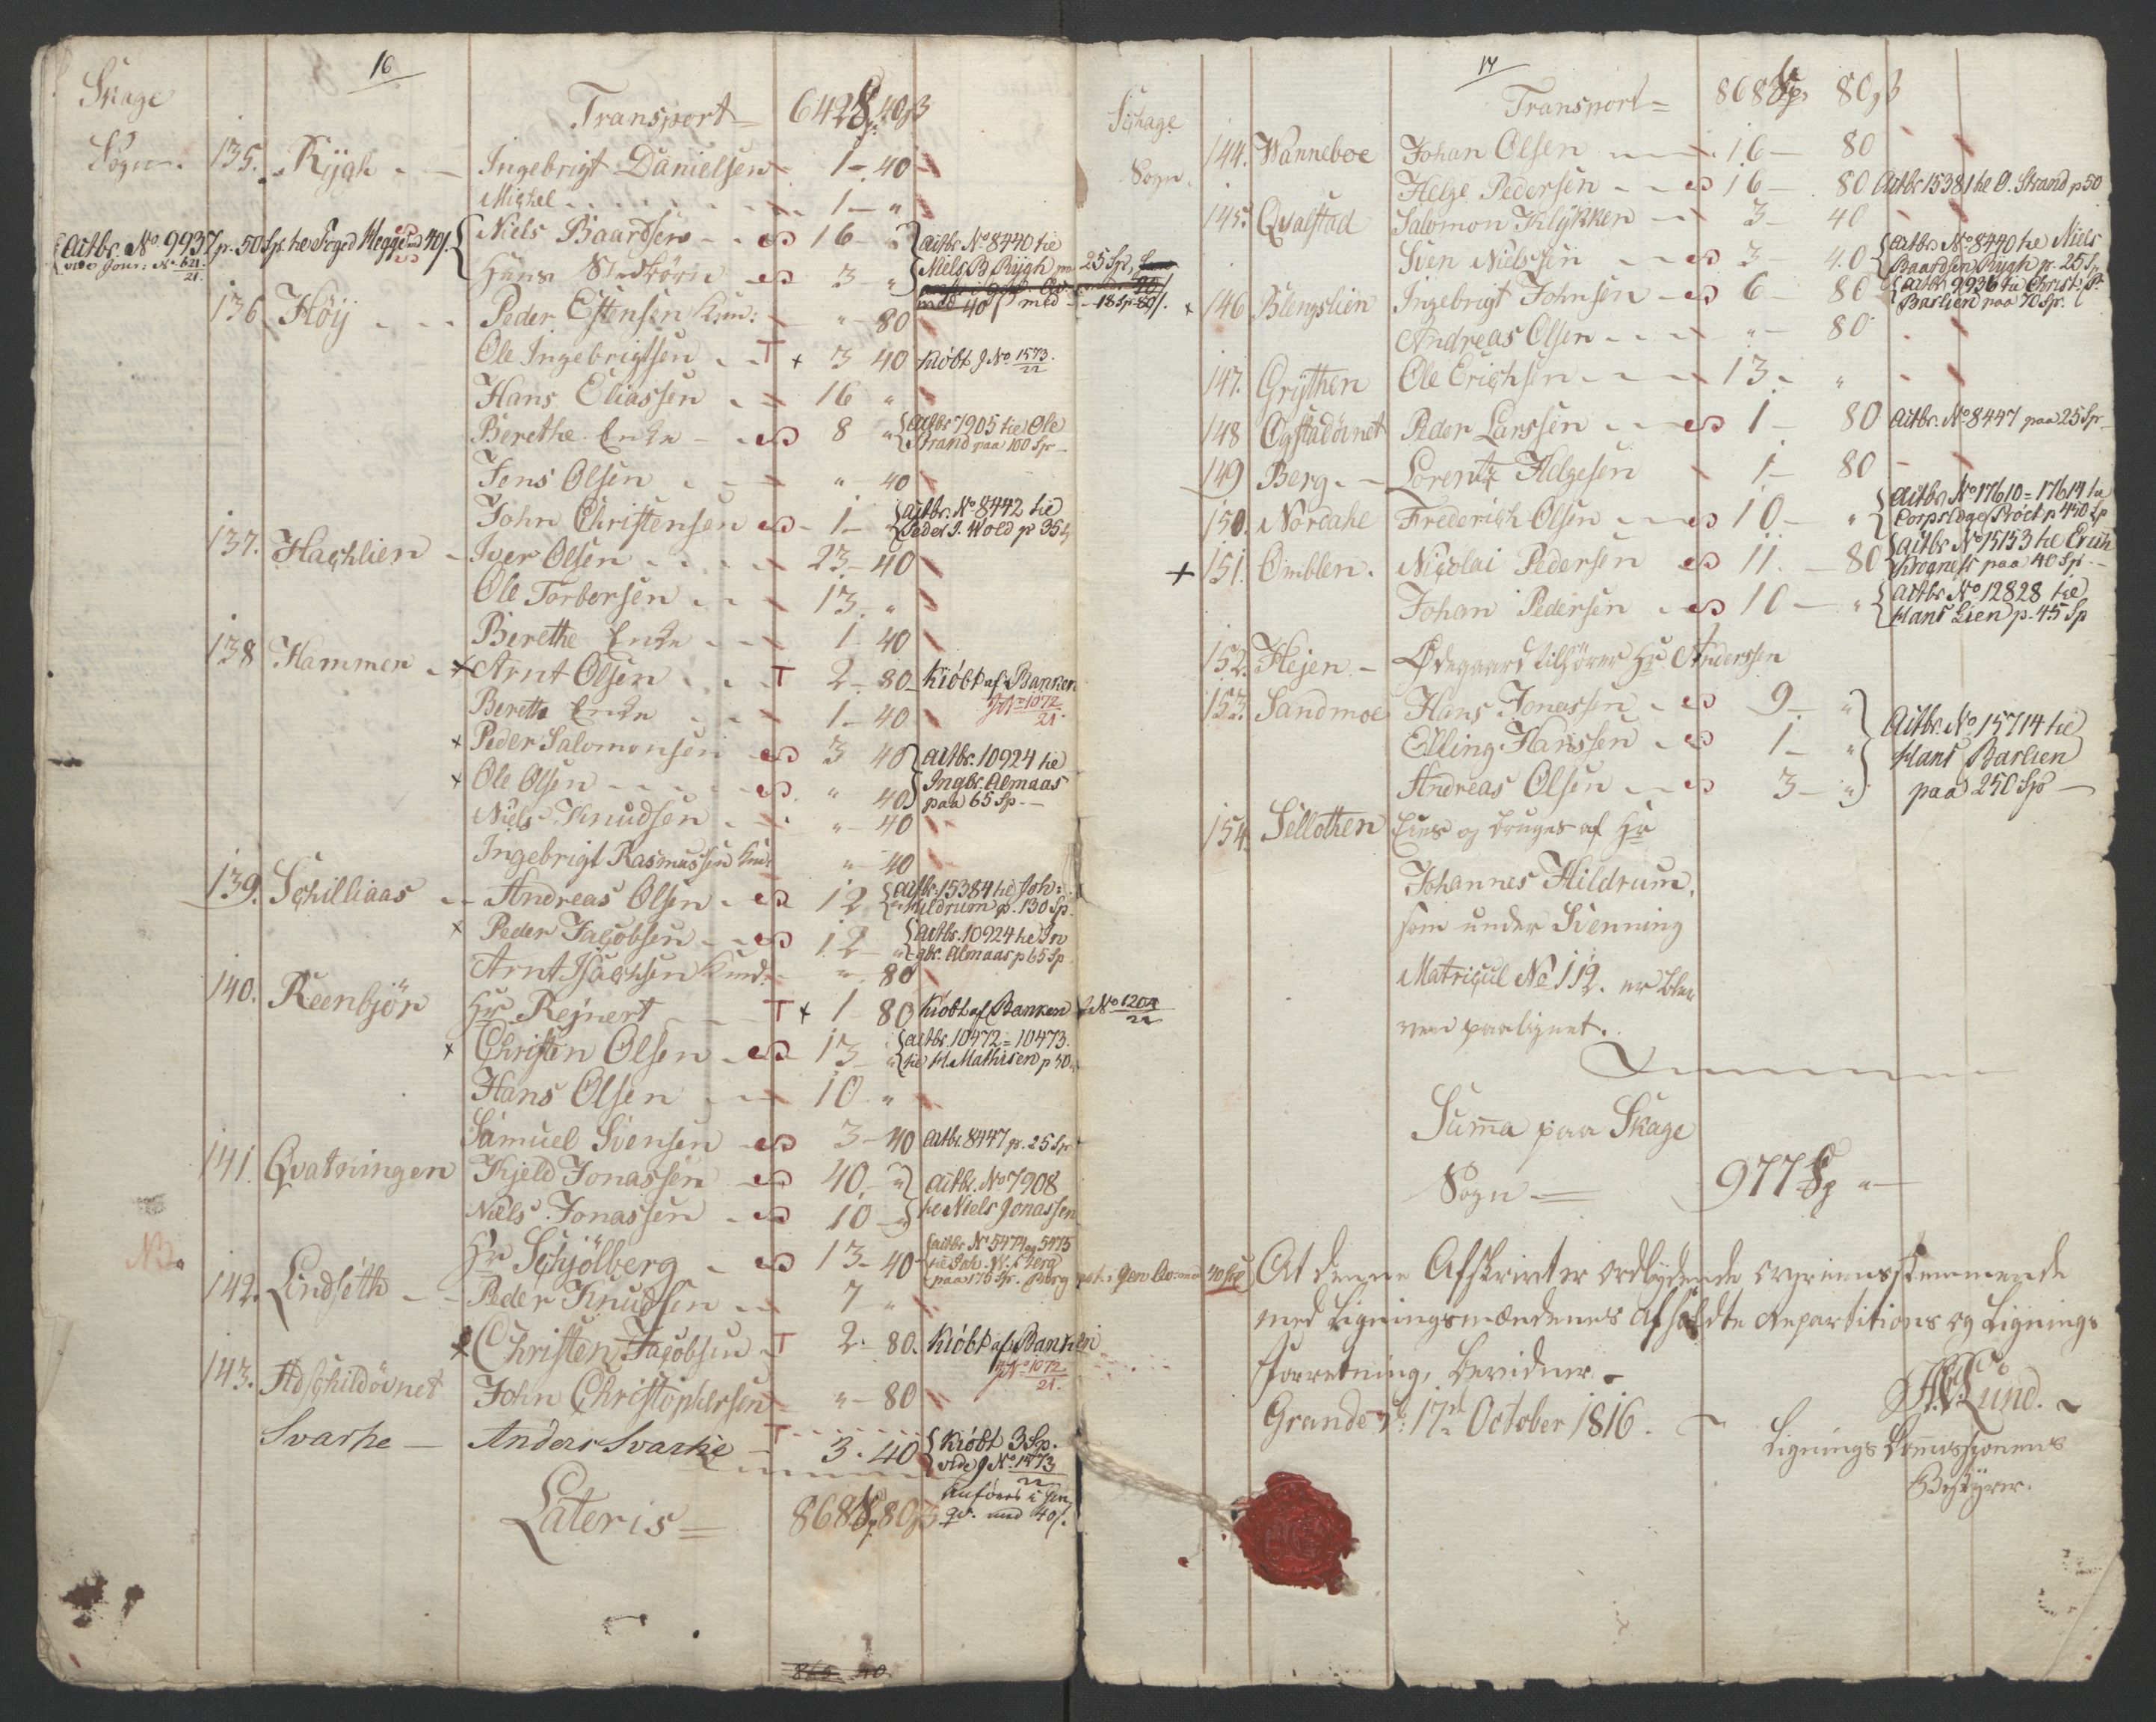 16
Skage
Sogn.
Transport = 642 Sp 40 ß
135. Rygh - - Ingebrigt Danielsen 1 - 40
Michel - - - 1 - "
Actbr. No 9937 p. 50 Sp. til Foged Heggelund 40 s.
vide Jour: No 621/21
Niels Baardsen - - 16 - "
Hans Stedbörn 3 - "
Actbr No 8440 til
Niels B Rygh p 25 Sp,
med 40 s med - 18 Sp 80 s.
136. Höy - - - Peder Estensen Kaar: " - 80
Ole Ingebrigtsen - - T + 3 40 kiöbt J No 1573/22
Hans Eliassen - 16 "
Berethe Enke - 8 " Actbr 7905 til Ole
Strand paa 100 Sp -
Jens Olsen - - " - 40
John Christensen - 1 - Actbr. No 8442 til
Peder J. Wold p 35 s
137. Hachlien - Iver Olsen - - - - 23 - 40
Ole Torbersen - - 13 - "
Berethe Enke - - 1 - 40
138 Hammer - + Arnt Olsen - - T 2 - 80 - kiöbt af Banken
J No 1072/21.
Berethe Enke - - 1 - 40
+ Peder Salomonsen 3 40 Actbr. 10924 til
+ Ole Olsen - - - - " 40 Ingbr. Almaas
paa 65 Sp. -
Niels Knudsen - - " - 40
Ingebrigt Rasmussen " - 40
139. Schilliaas - - Andreas Olsen - 12 Actbr. 15384 til Joh:
Hildrum p. 130 Sp.
+ Peder Jacobsen - - 12 - " Actbr. 10924 til In
gbr. Almaas p 65 Sp
Arnt Isachsen " - 80
140. Reenbjör Hr Rejnert T + 1 80 kiöbt af Banken J No 1204/22
+ Christen Olsen - 13 - " Actbr. 10472 = 10473.
til H. Mathisen p 50
Hans Olsen - - 10 - "
Samuel Svensen 3 - 40 Actbr. 8447 p. 25 Sp
141. Qvatningen Kjeld Jonassen 40 - " Actbr. No 7908
Niels Jonassen - 10 - " til Niels Jonassen
NB.
Hr Schjölberg - 13 - 40 Actbr No 5474 og 5475
til Joh. N. Berg
paa 175 Sp. Berg ant. i Gen Qv: med 40 sk
142. Lindseth - - Peder Knudsen - - 7 - "
+ Christen Jacobsen T 2 - 80. kiöbt af Banken
J No 1072/21.
143. Adschildövnet John Christophersen " - 80
Svarke - Anders Svarke T 3 - 40 kiöbt 3 Sp.
vide J No 1573/22
Anföres i Gen
qv. med 40 s.
Lateris = 868 Sp 80 ß
17
Schage
Sogn.
Transport = 868 Sp 80 ß
144. Wanneboe Johan Olsen - - 16 - 80
Helge Pedersen - - 16 - 80 Actbr 15381 til O. Strand p 50
145. Qvalstad Salomon Klykken - 3 - 40
Sven Nielssen - - 3 - 40 Actbr No 8440 til Niels
Baardsen Rygh p. 25 Sp
+ 146 Blengslien Ingebrigt Johnsen - 6 - 80 Actbr 9936 til Christ: P
Barlien paa 70 Sp.
Andreas Olsen - - - " - 80
147. Grythen Ole Erichsen - - - 13 - "
148 Ogstadövnet Peder Larssen - - 1 - 80 Actbr. No 8447 paa 25 Sp -
149 Berg - - Lorentz Helgesen 1 - 80
150. Nordahl Frederich Olsen - - 10 - " Actbr No 17610 = 17614 til
Corpslæge Pröct p 450 Sp
+ 151. Ömblen. Nicolai Pedersen 11. - 80 Actbr No 15153 til Erich
Krogness paa 40 Sp -
Johan Pedersen - 10 - " Actbr No 12828 til
Hans Lien p. 45 Sp
152. Hejen - Ödegaard tilhörer Hr Anderssen
153. Sandmoe Hans Jonassen - 9 - "
Elling Hanssen - 1 - " Actbr. No 15714 til
Andreas Olsen - 3 - " Hans Barlien
paa 250 Sp -
154. Sellothen Eies og bruges af Hr
Johannes Hildrum,
som under Svenning
Matricul No 112. er ble
ven paalignet.
Suma paa Skage
Sogn = 977 Sp "
At denne Afskrivt er ordlydende overeensstemmende
med Ligningsmændenes afholdte Repartitions og Lignings
Forretning, bevidner. -
Grande d. 17de October 1816. - Lund. -
Lignings Commissionens
Bestyrer.